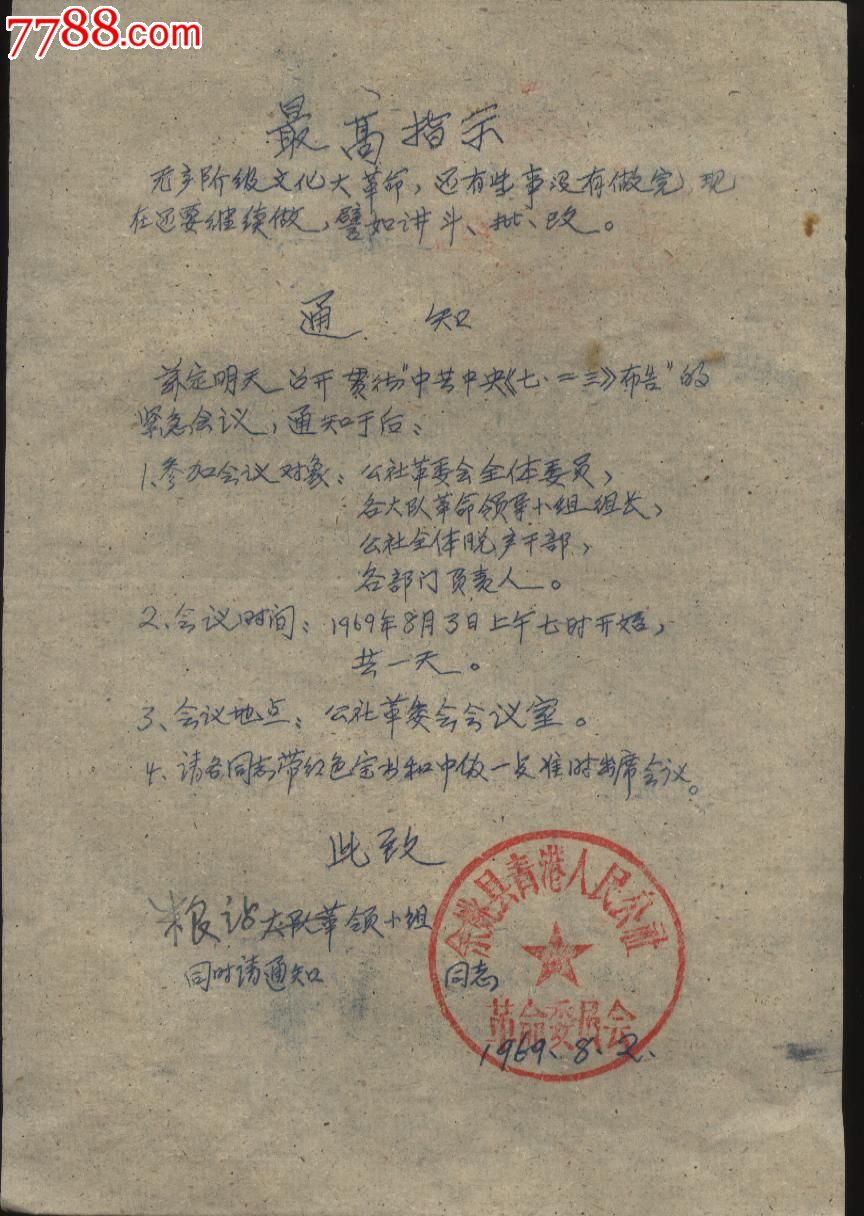 7788.com
最高指示
无产阶级文化大革命，还有些事没有做完，现
在还要继续做，譬如讲斗、批、改。
通 知
兹定明天召开贯彻"中共中央《七·二三》布告"的
紧急会议，通知于后：
1、参加会议对象：公社革委会全体委员，
各大队革命领导小组组长，
公社全体脱产干部，
各部门负责人。
2、会议时间：1969年8月3日上午七时开始，
共一天。
3、会议地点：公社革委会会议室。
4、请各同志带红色宝书和中饭一走准时出席会议。
此致
粮站大队革领小组
同时请通知 同志
县青港人民公社
革命委员会
1969.8.2.